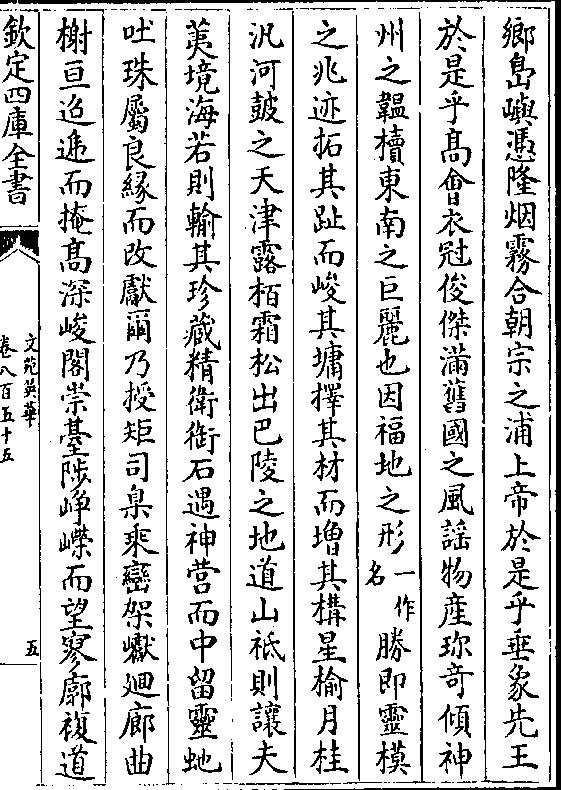 鄉島嶼憑隆烟霧合朝宗之浦上帝於是乎垂象先王
於是乎髙會衣冠俊傑滿舊國之風謡物產珎竒傾神
州之韞櫝東南之巨麗也因福地之形一作名勝即靈模
之兆迹拓其趾而峻其墉擇其材而増其構星榆月桂
汎河鼓之天津露栢霜松出巴陵之地道山祗則讓夫
荑境海若則輸其珍藏精衛銜石遇神營而中留靈虵
吐珠屬良縁而改獻爾乃授矩司臬乘巒架巘廻廊曲
榭亘迢遞而掩髙深峻閣崇臺陟崢嶸而望寥廓複道
欽定四庫全書
文苑英華
卷八百五十五
五